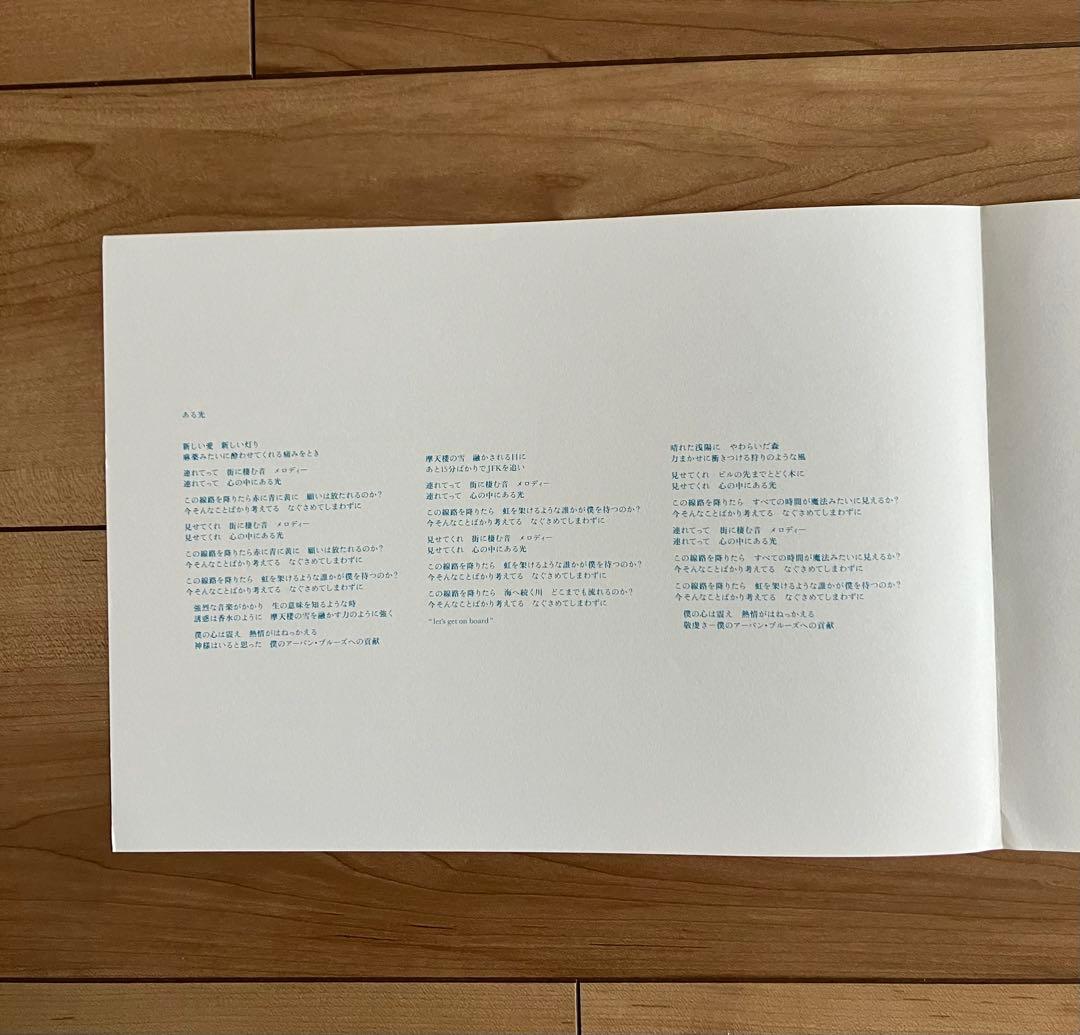 ある光
新しい愛　新しい灯り
麻薬みたいに酔わせてくれる痛みをとき
連れてって　街に棲む音　メロディー
連れてって　心の中にある光
この線路を降りたら赤に青に黄に　願いは放たれるのか？
今そんなことばかり考えてる　なぐさめてしまわずに
見せてくれ　街に棲む音　メロディー
見せてくれ　心の中にある光
この線路を降りたら赤に青に黄に　願いは放たれるのか？
今そんなことばかり考えてる　なぐさめてしまわずに
この線路を降りたら　虹を架けるような誰かが僕を待つのか？
今そんなことばかり考えてる　なぐさめてしまわずに
強烈な音楽がかかり　生の意味を知るような時
誘惑は香水のように　摩天楼の雪を融かす力のように強く
僕の心は震え　熱情がはねっかえる
神様はいると思った　僕のアーバン・ブルーズへの貢献
摩天楼の雪　融かされる日に
あと15分ばかりでJFKを追い
連れてって　街に棲む音　メロディー
連れてって　心の中にある光
この線路を降りたら　虹を架けるような誰かが僕を待つのか？
今そんなことばかり考えてる　なぐさめてしまわずに
見せてくれ　街に棲む音　メロディー
見せてくれ　心の中にある光
この線路を降りたら　虹を架けるような誰かが僕を待つのか？
今そんなことばかり考えてる　なぐさめてしまわずに
この線路を降りたら　海へ続く川　どこまでも流れるのか？
今そんなことばかり考えてる　なぐさめてしまわずに
"let's get on board"
晴れた浅陽に　やわらいだ森
力まかせに衝きつける狩りのような風
見せてくれ　ビルの先までとどく木に
見せてくれ　心の中にある光
この線路を降りたら　すべての時間が魔法みたいに見えるか？
今そんなことばかり考えてる　なぐさめてしまわずに
連れてって　街に棲む音　メロディー
連れてって　心の中にある光
この線路を降りたら　すべての時間が魔法みたいに見えるか？
今そんなことばかり考えてる　なぐさめてしまわずに
この線路を降りたら　虹を架けるような誰かが僕を待つのか？
今そんなことばかり考えてる　なぐさめてしまわずに
僕の心は震え　熱情がはねっかえる
敬虔さ－僕のアーバン・ブルーズへの貢献